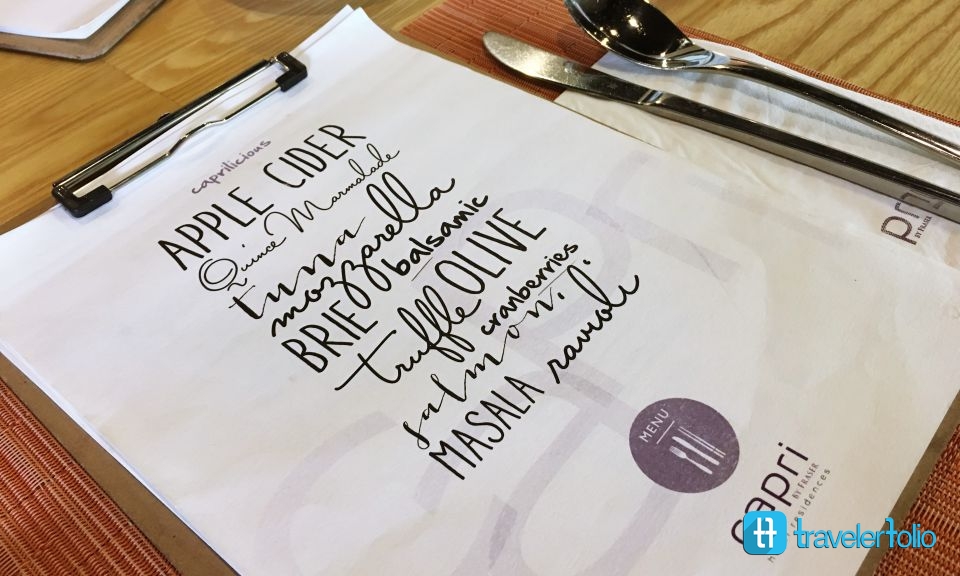 caprilicious
APPLE CIDER
Quince Marmalade
tuna
mozzarella
BRIE balsamic
truffle OLIVE
salmon. cranberries
MASALA ravioli
MENU
capri
BY FRASER
residences
BY FRASER
travelerfolio